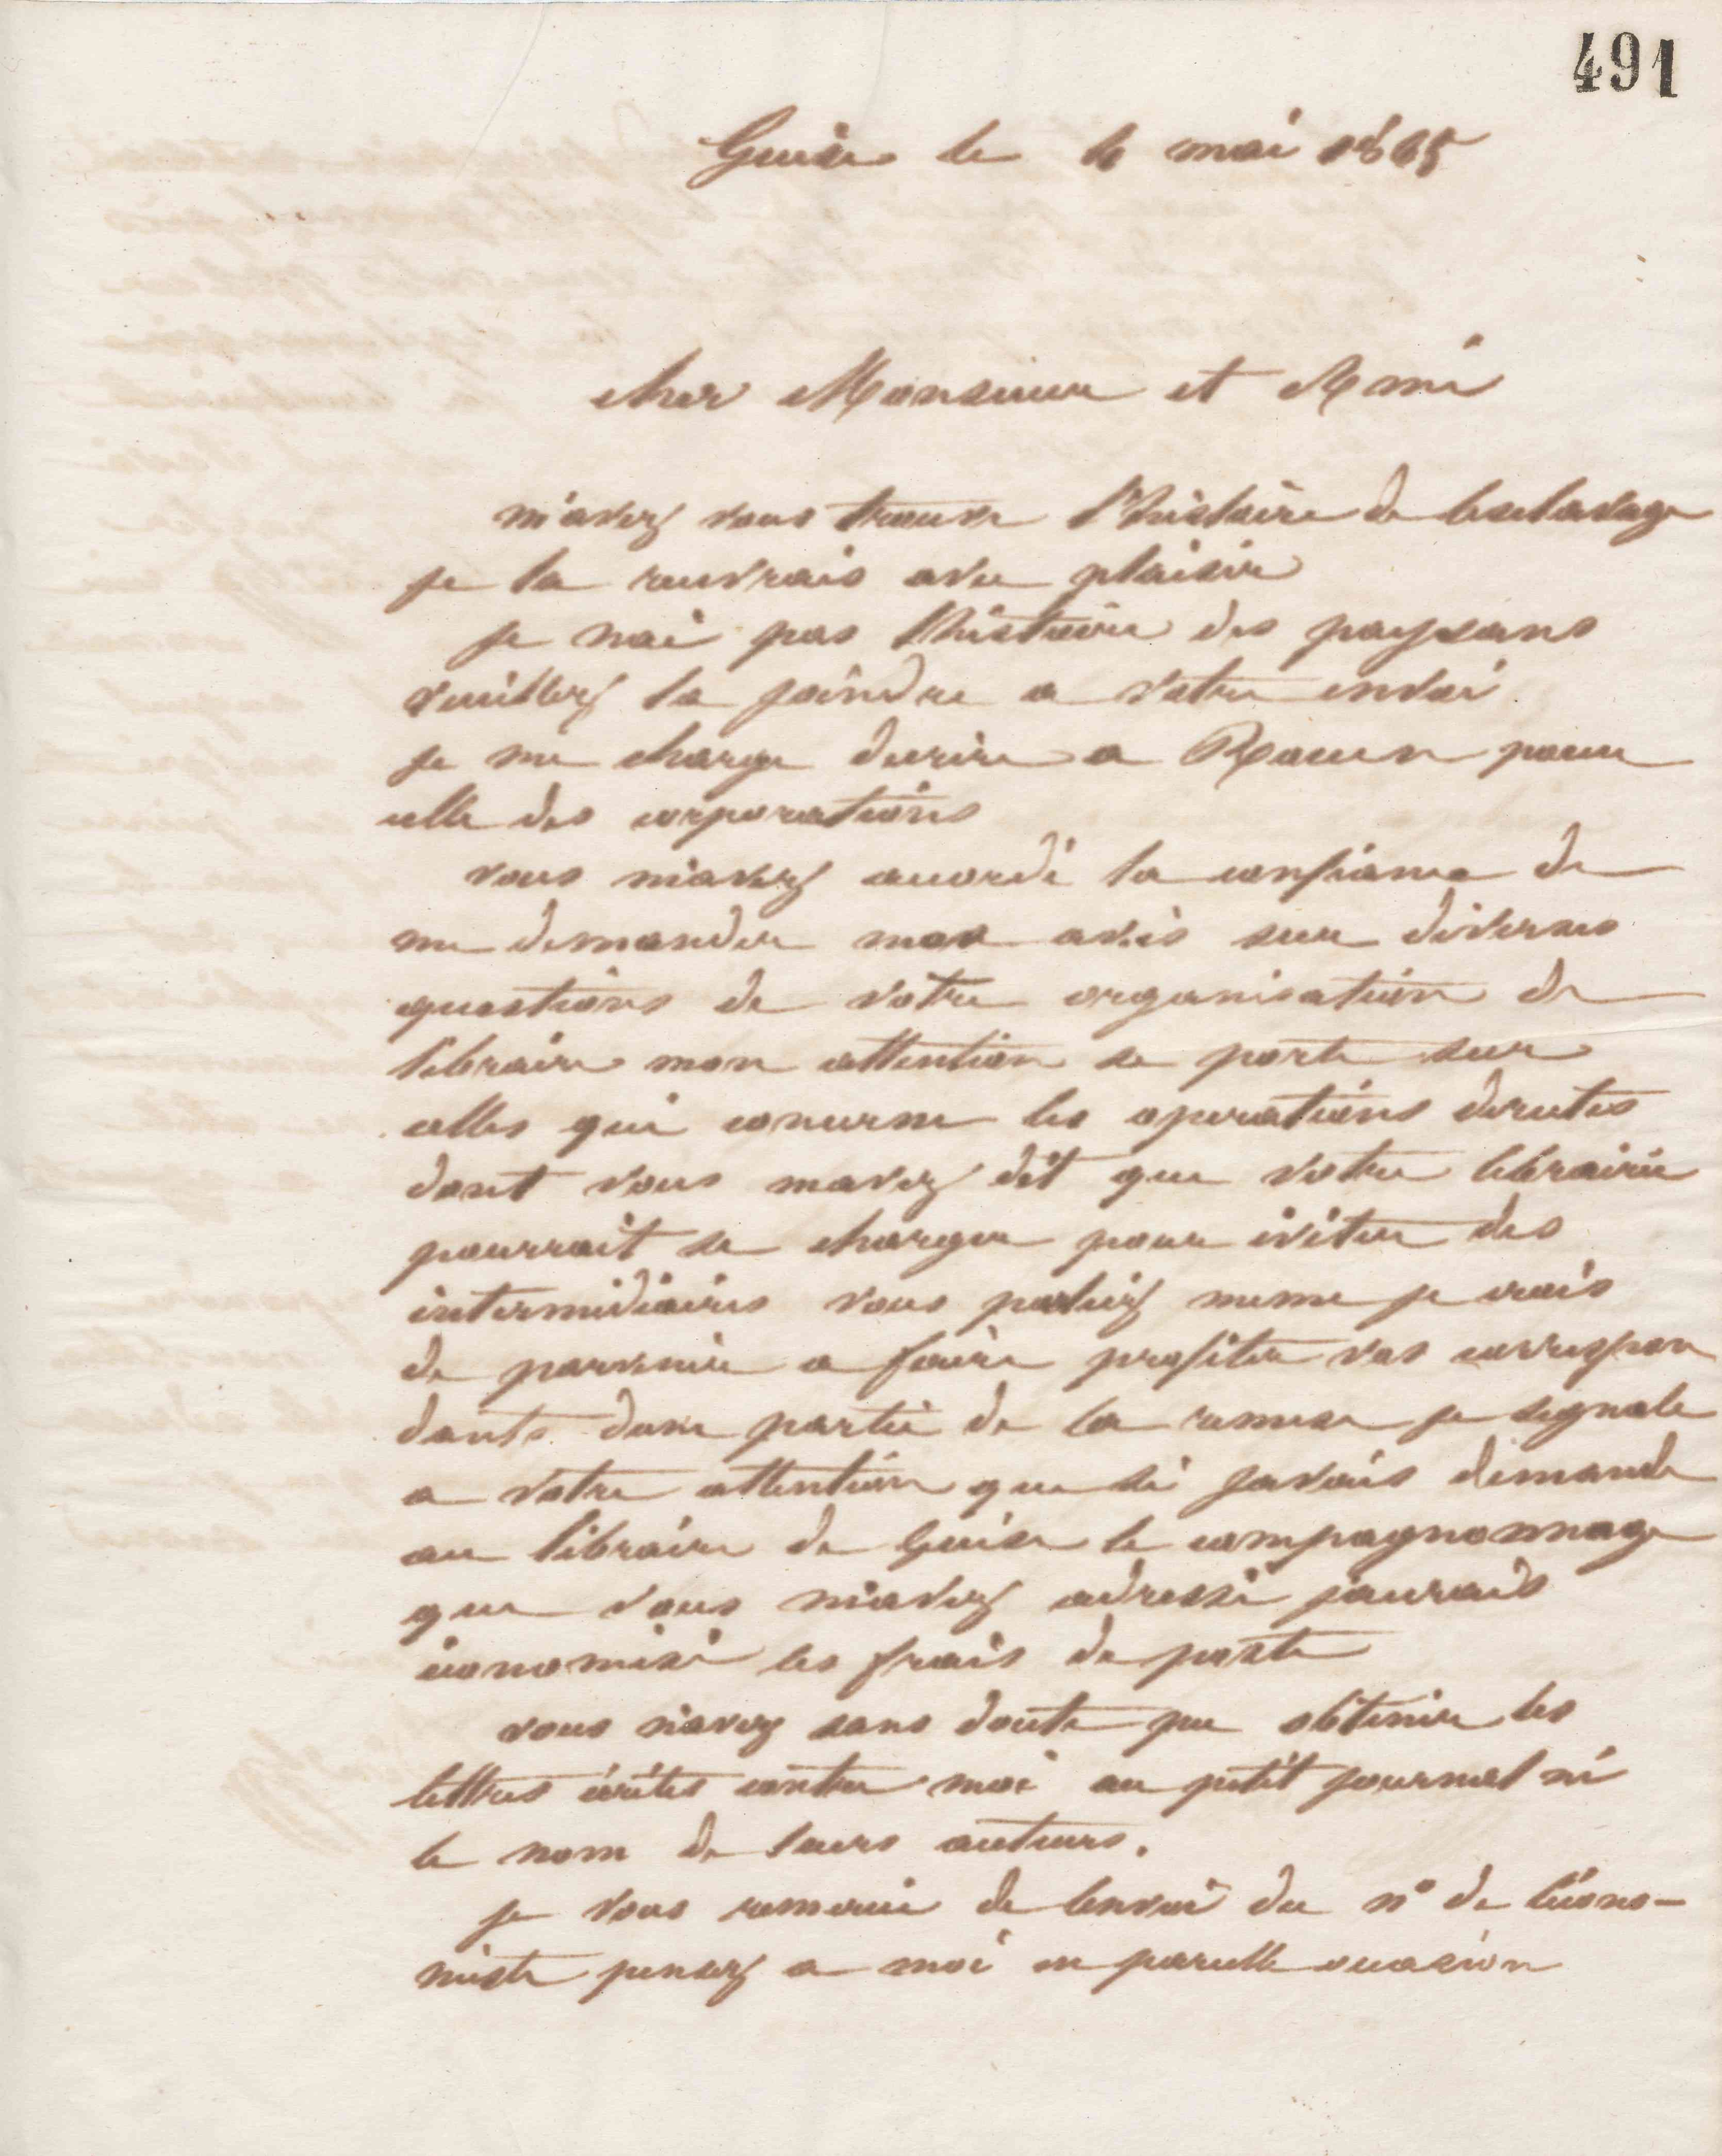 491
Guise le 4 mai 1865
cher Monsieur et Ami
m'avez vous trouvé l'histoire de lesclavage
je la recevrais avec plaisir
je nai pas l'histoire des paysans
veuillez la joindre a votre envoi
je me charge decrire a Rouen pour
celle des corporations
vous m'avez accordé la confiance de
me demander mon avis sur diverses
questions de votre organisation de
libraire mon attention se porte sur
celles qui concerne les operations directes
dont vous mavez dit que votre librairie
pourrait se charger pour éviter des
intermédiaires vous parliez meme je crois
de parvenir a faire profiter vos correspon
dants dune partie de la remise je signale
a votre attention que si javais demandé
au libraire de Guise le compagnonnage
que vous m'avez adressé jaurais
économisé les frais de poste
vous n'avez sans doute pu obtenir les
lettres écrites contre moi au petit journal ni
le nom de leurs auteurs.
je vous remercie de lenvoi du n° de lécono-
miste pensez a moi en pareille occasion